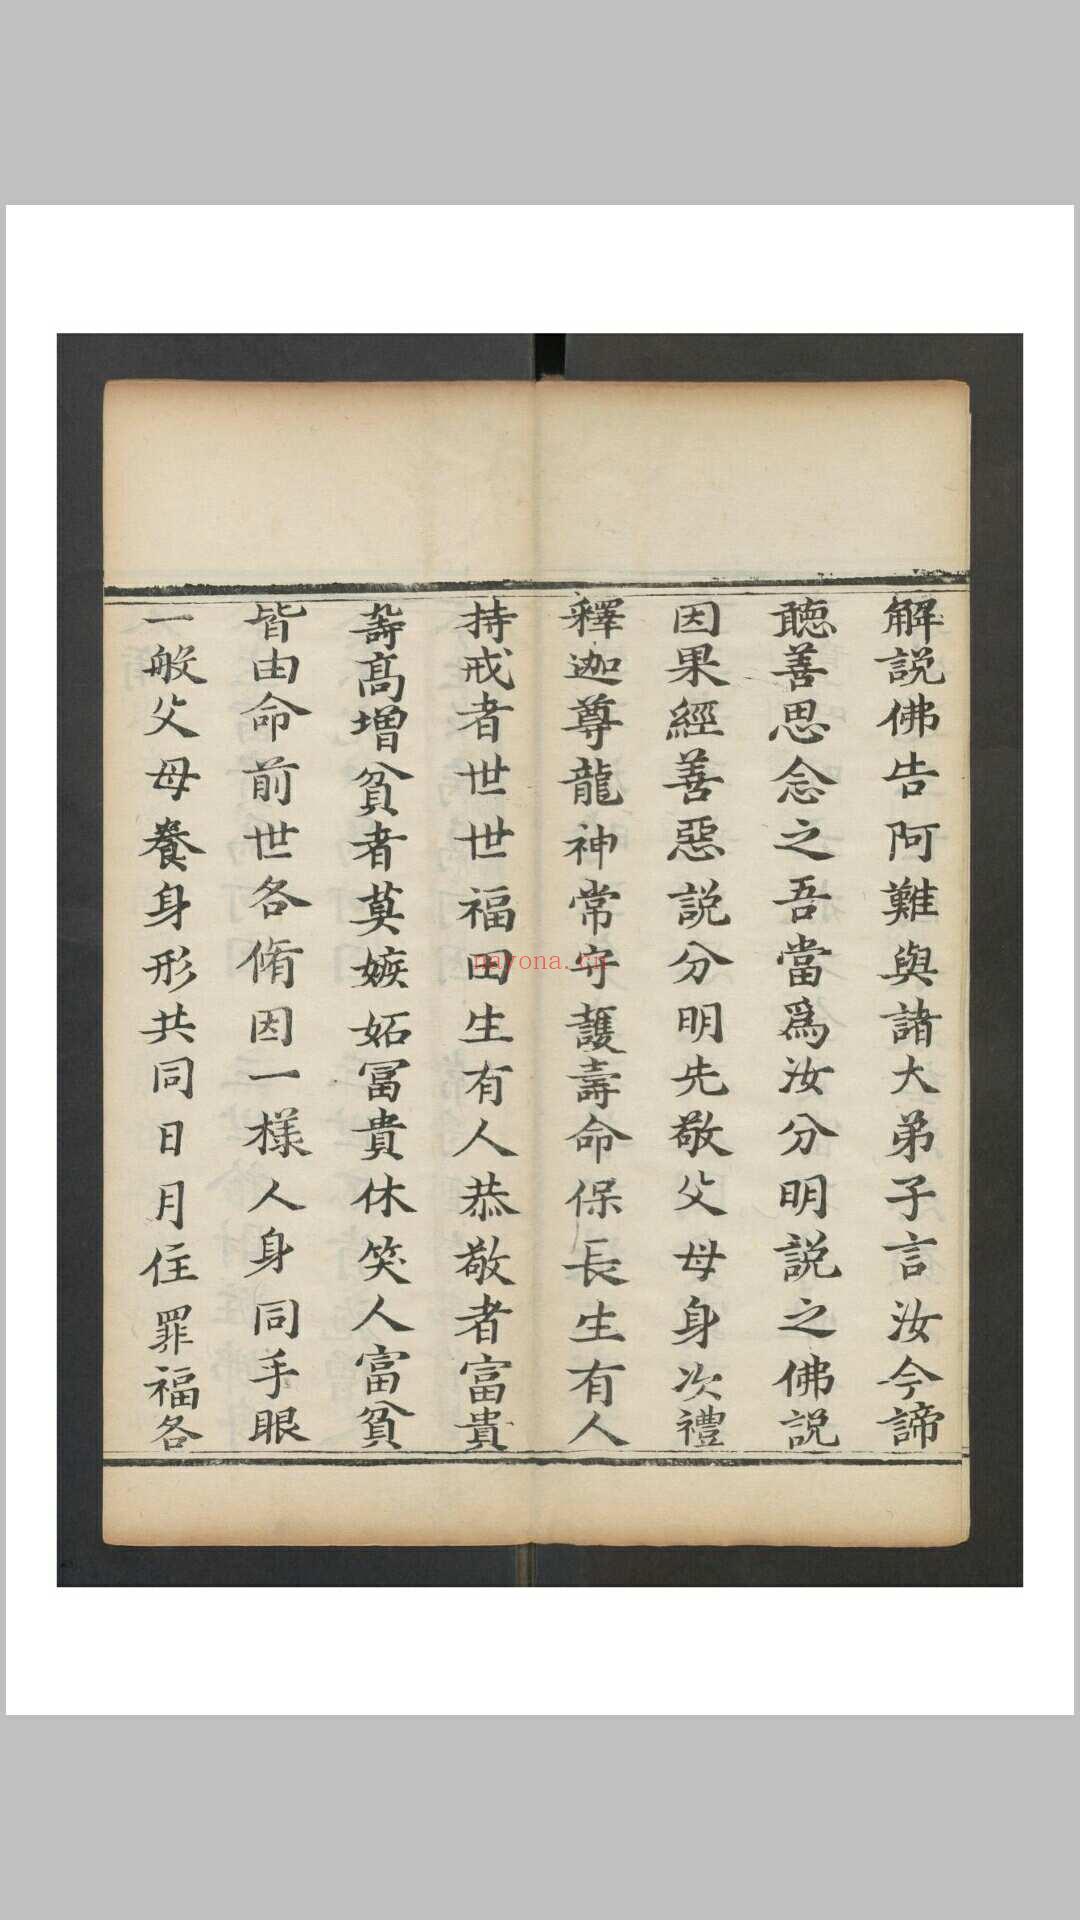 解說佛告阿難與諸大弟子言汝今諦
聽善思念之吾當爲汝分明說之佛說
因果經善惡說分明先敬父母身次禮
釋迦尊龍神常守護壽命保長生有人
持戒者世世福田生有人恭敬者富貴
壽高增貧者莫嫉妬冨貴休笑人富貧
皆由命前世各脩因一樣人身同手眼
一般父母養身形共同日月住罪福各
nayona.cn